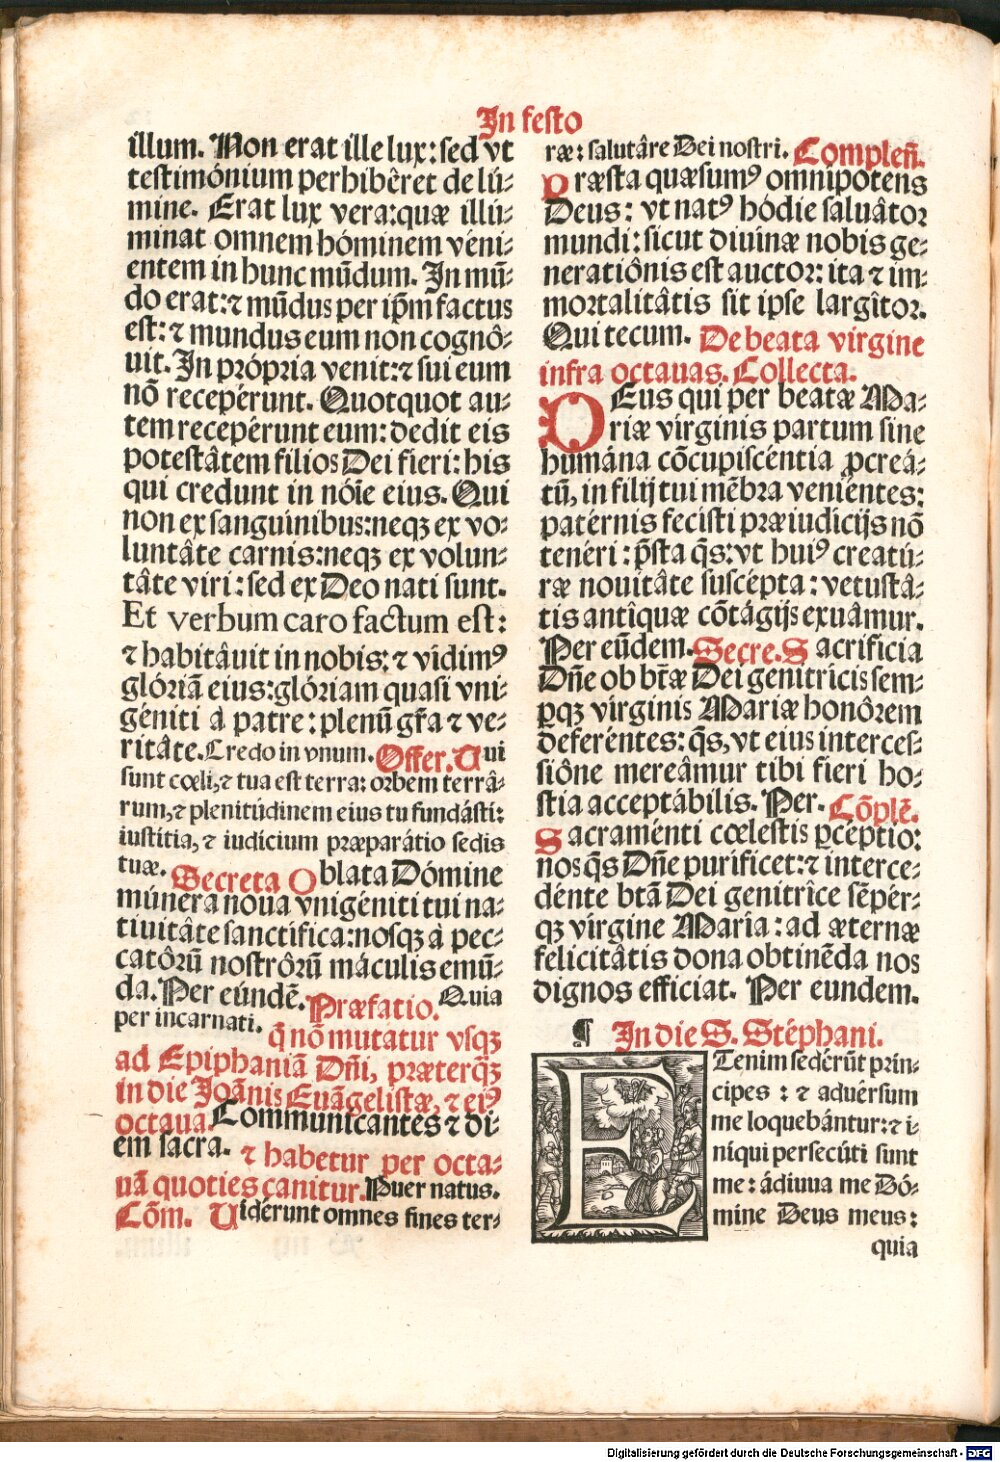 In festo
illum. Non erat ille lux: sed vt
testimónium perhibêret de lú-
mine. Erat lux vera: quæ illú-
minat omnem hóminem véni-
entem in hunc mũdum. In mũ-
do erat: ⁊ mũdus per ip̃m factus
est: ⁊ mundus eum non cognô-
uit. In própria venit: ⁊ sui eum
nõ recepérunt. Quotquot au-
tem recepérunt eum: dedit eis
potestâtem filios Dei fieri: his
qui credunt in nóĩe eius. Qui
non ex sanguinibus: neqꝫ ex vo-
luntâte carnis: neqꝫ ex volun-
tâte viri: sed ex Deo nati sunt.
Et verbum caro factum est:
⁊ habitâuit in nobis: ⁊ vîdimꝰ
glóriã eius: glóriam quasi vni-
géniti à patre: plenũ gr̃a ⁊ ve-
ritâte. Credo in vnum. Offer. Tui
sunt cœli, ⁊ tua est terra: orbem terrâ-
rum, ⁊ plenitúdinem eius tu fundásti:
iustitia, ⁊ iudicium præparátio sedis
tuæ. Secreta Oblata Dómine
múnera noua vnigéniti tui na-
tiuitâte sanctifica: nosqꝫ à pec-
catôrũ nostrôrũ máculis emũ-
da. Per eúndẽ. Præfatio. Quia
per incarnati. q̃ nõ mutatur vsqꝫ
ad Epiphaniã Dñi, præterqꝫ̃
in die Joãnis Euãgelistæ, ⁊ eiꝰ
octaua. Communicantes ⁊ di-
em sacra. ⁊ habetur per octa-
uã quoties canitur. Puer natus.
Cõm. Vidérunt omnes fines ter-
ræ: salutâre Dei nostri. Compleñ.
Præsta quæsumꝰ omnipotens
Deus: vt natꝰ hódie saluâtor
mundi: sicut diuinæ nobis ge-
neratiônis est auctor: ita ⁊ im-
mortalitâtis sit ipse largîtor.
Qui tecum. De beata virgine
infra octauas. Collecta.
DEus qui per beatæ Ma-
riæ virginis partum sine
humána cõcupiscéntia ꝓcreá-
tũ, in filij tui mẽbra veniéntes:
patérnis fecisti præiudicijs nõ
tenéri: p̃sta q̃s: vt huiꝰ creatú-
ræ nouitâte suscépta: vetustâ-
tis antîquæ cõtágijs exuâmur.
Per eũdem. Secre. Sacrificia
Dñe ob bt̃æ Dei genitrícis sem-
ꝑqꝫ virginis Mariæ honôrem
deferéntes: q̃s, vt eius interces-
siône mereâmur tibi fieri ho-
stia acceptábilis. Per. Cõplẽ.
Sacramenti cœlestis ꝑceptio:
nos q̃s Dñe purificet: ⁊ interce-
dénte btã Dei genitrîce sẽpér-
qꝫ vírgine María: ad ætérnæ
felicitâtis dona obtinẽda nos
dignos efficiat. Per eundem.
¶ In die S. Stéphani.
ETenim sedérũt prin-
cipes: ⁊ aduérsum
me loquebántur: ⁊ i-
níqui persecúti sunt
me: ádiuua me Dó-
mine Deus meus:
quia
Digitalisierung gefördert durch die Deutsche Forschungsgemeinschaft - DFG